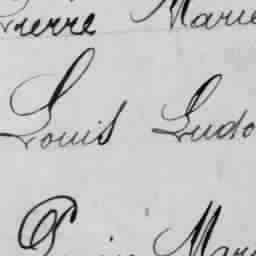 Pierre Marie
Louis Ludo
Mar